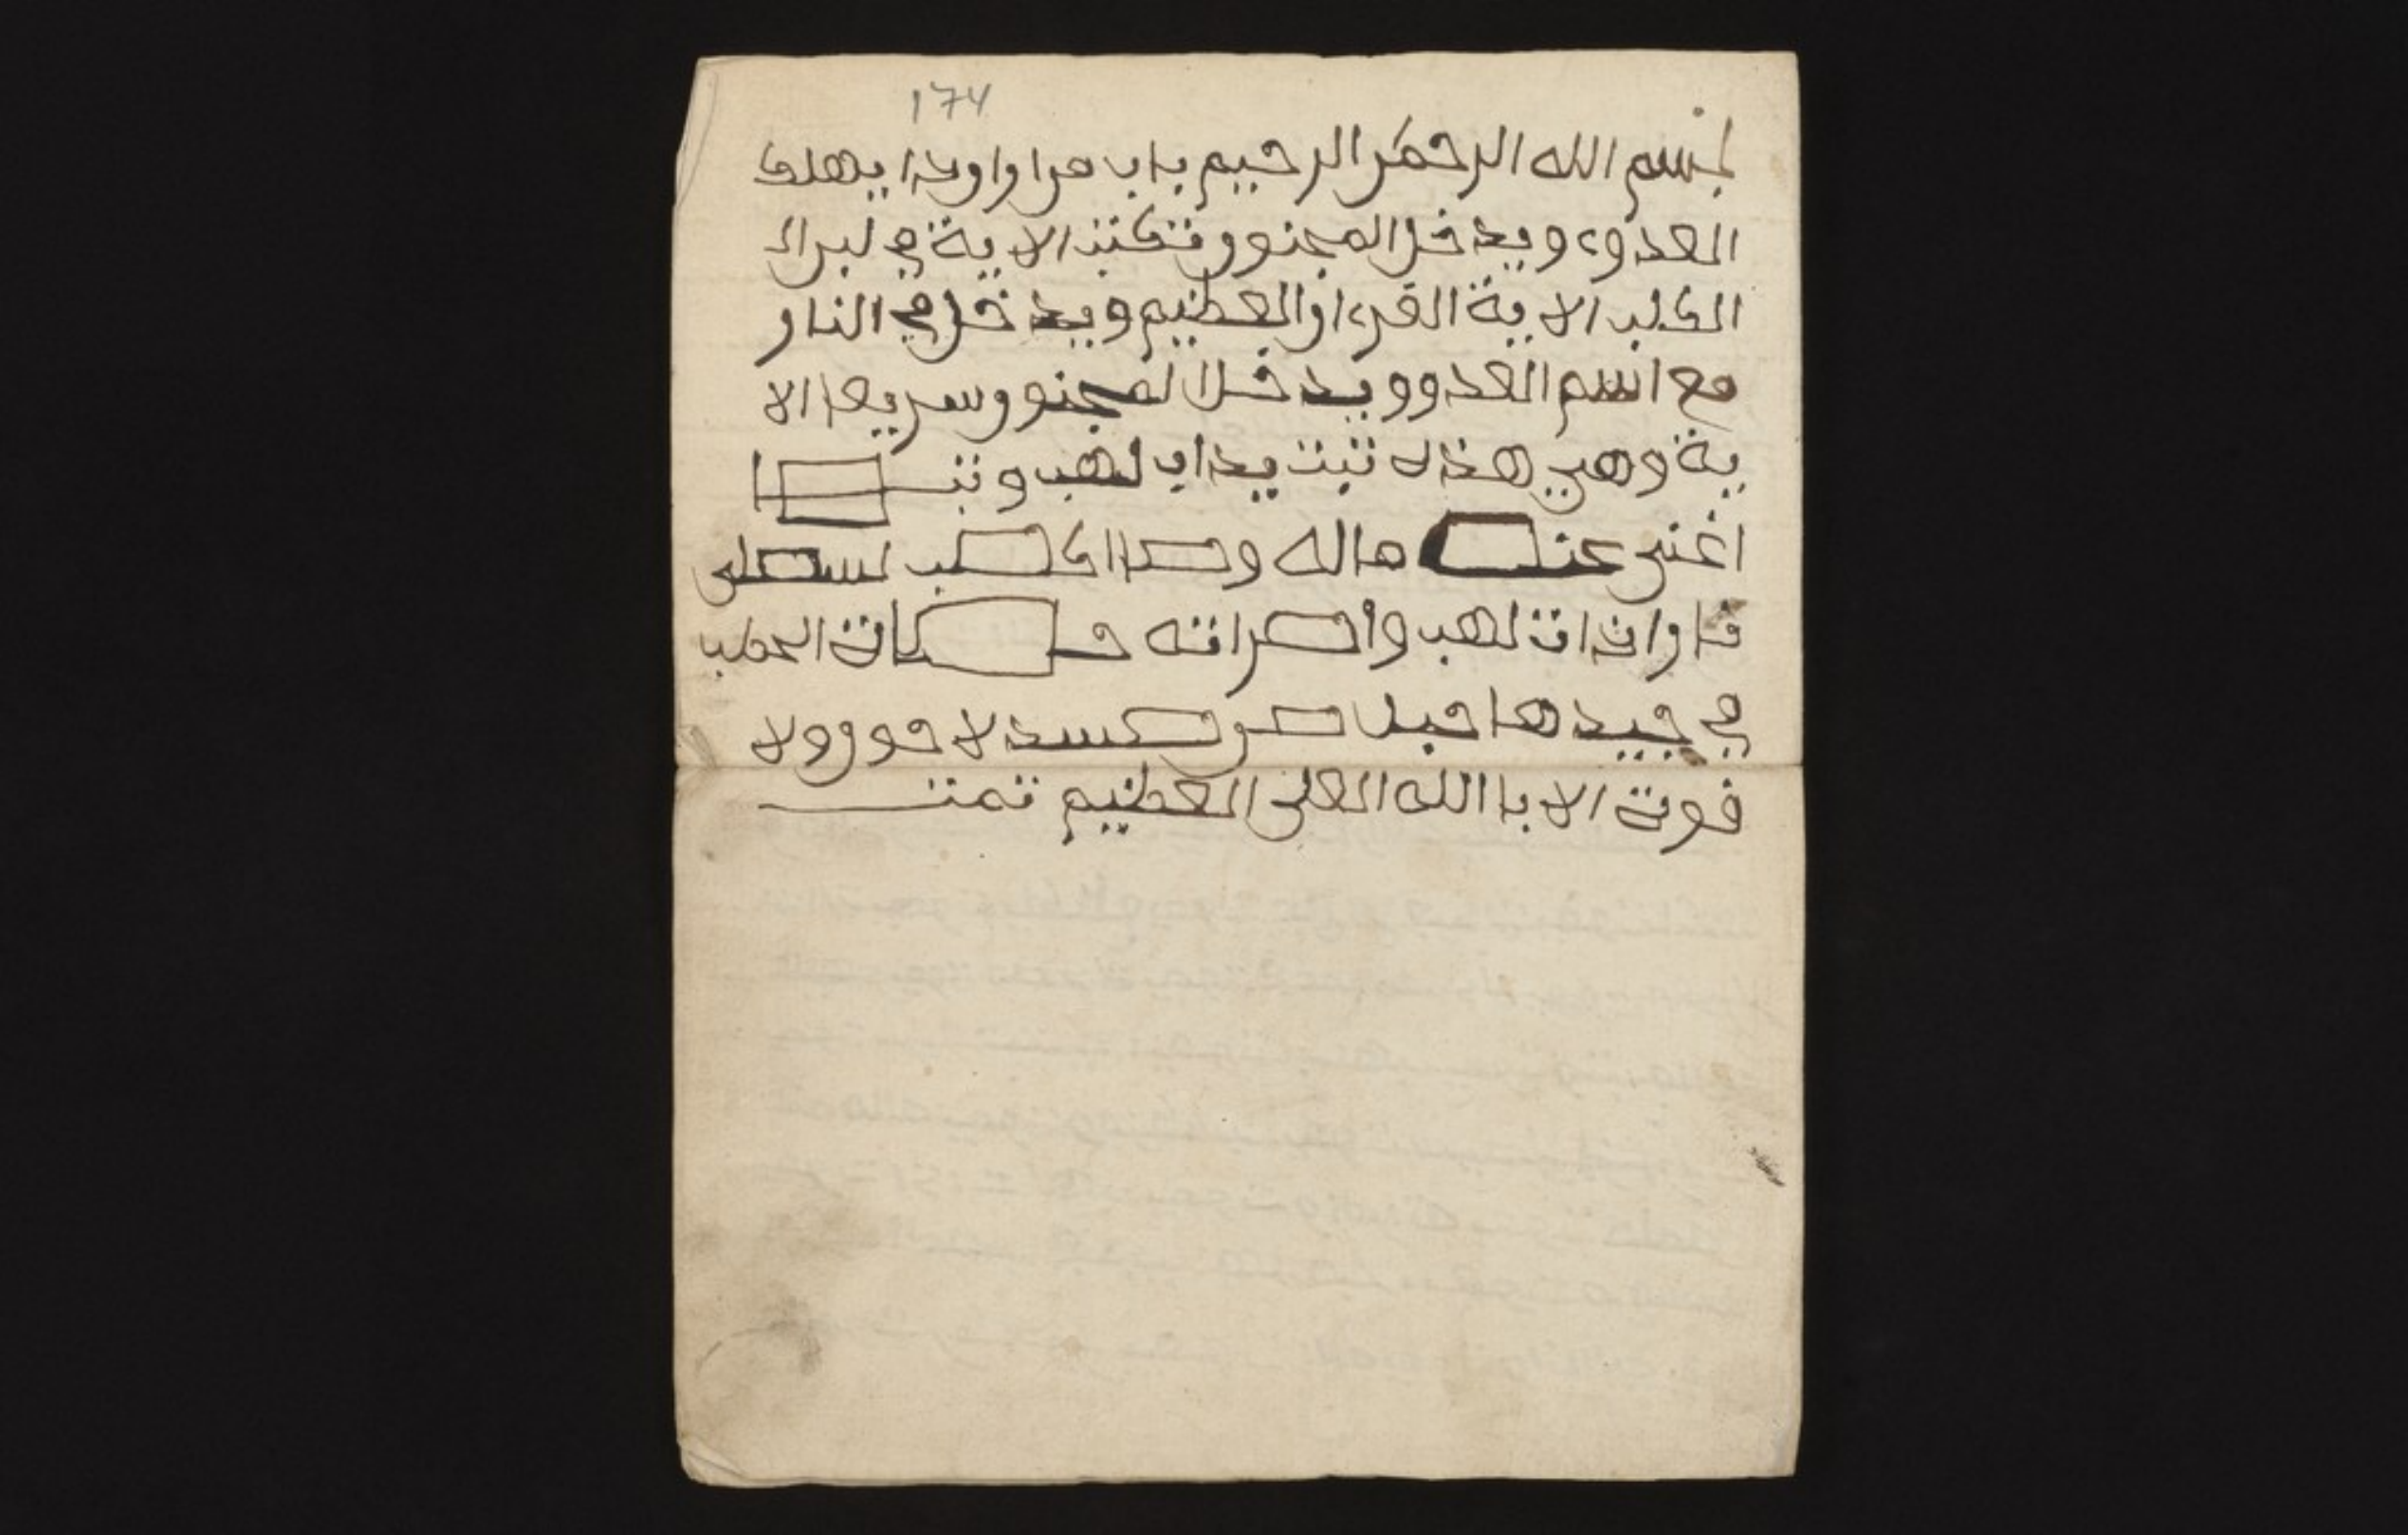 174
بسم الله الرحمن الرحيم باب من اراد ان يهلك
العدوء ويدخل المجنون تكتب الاية في لبراك
الكلب الاية القرءان العظيم ويدخل في النار
مع اسم العدو ويدخل المجنون سريعا الا
ية وهي هذه تبت يدا ابي لهب وتب ا
اغنى عنه ماله وما اكسب سيصلى
نارا ذات لهب وامراته حمالة الحطب
في جيدها حبل من مسد لا حول ولا
قوة الا باالله العلي العظيم تمت